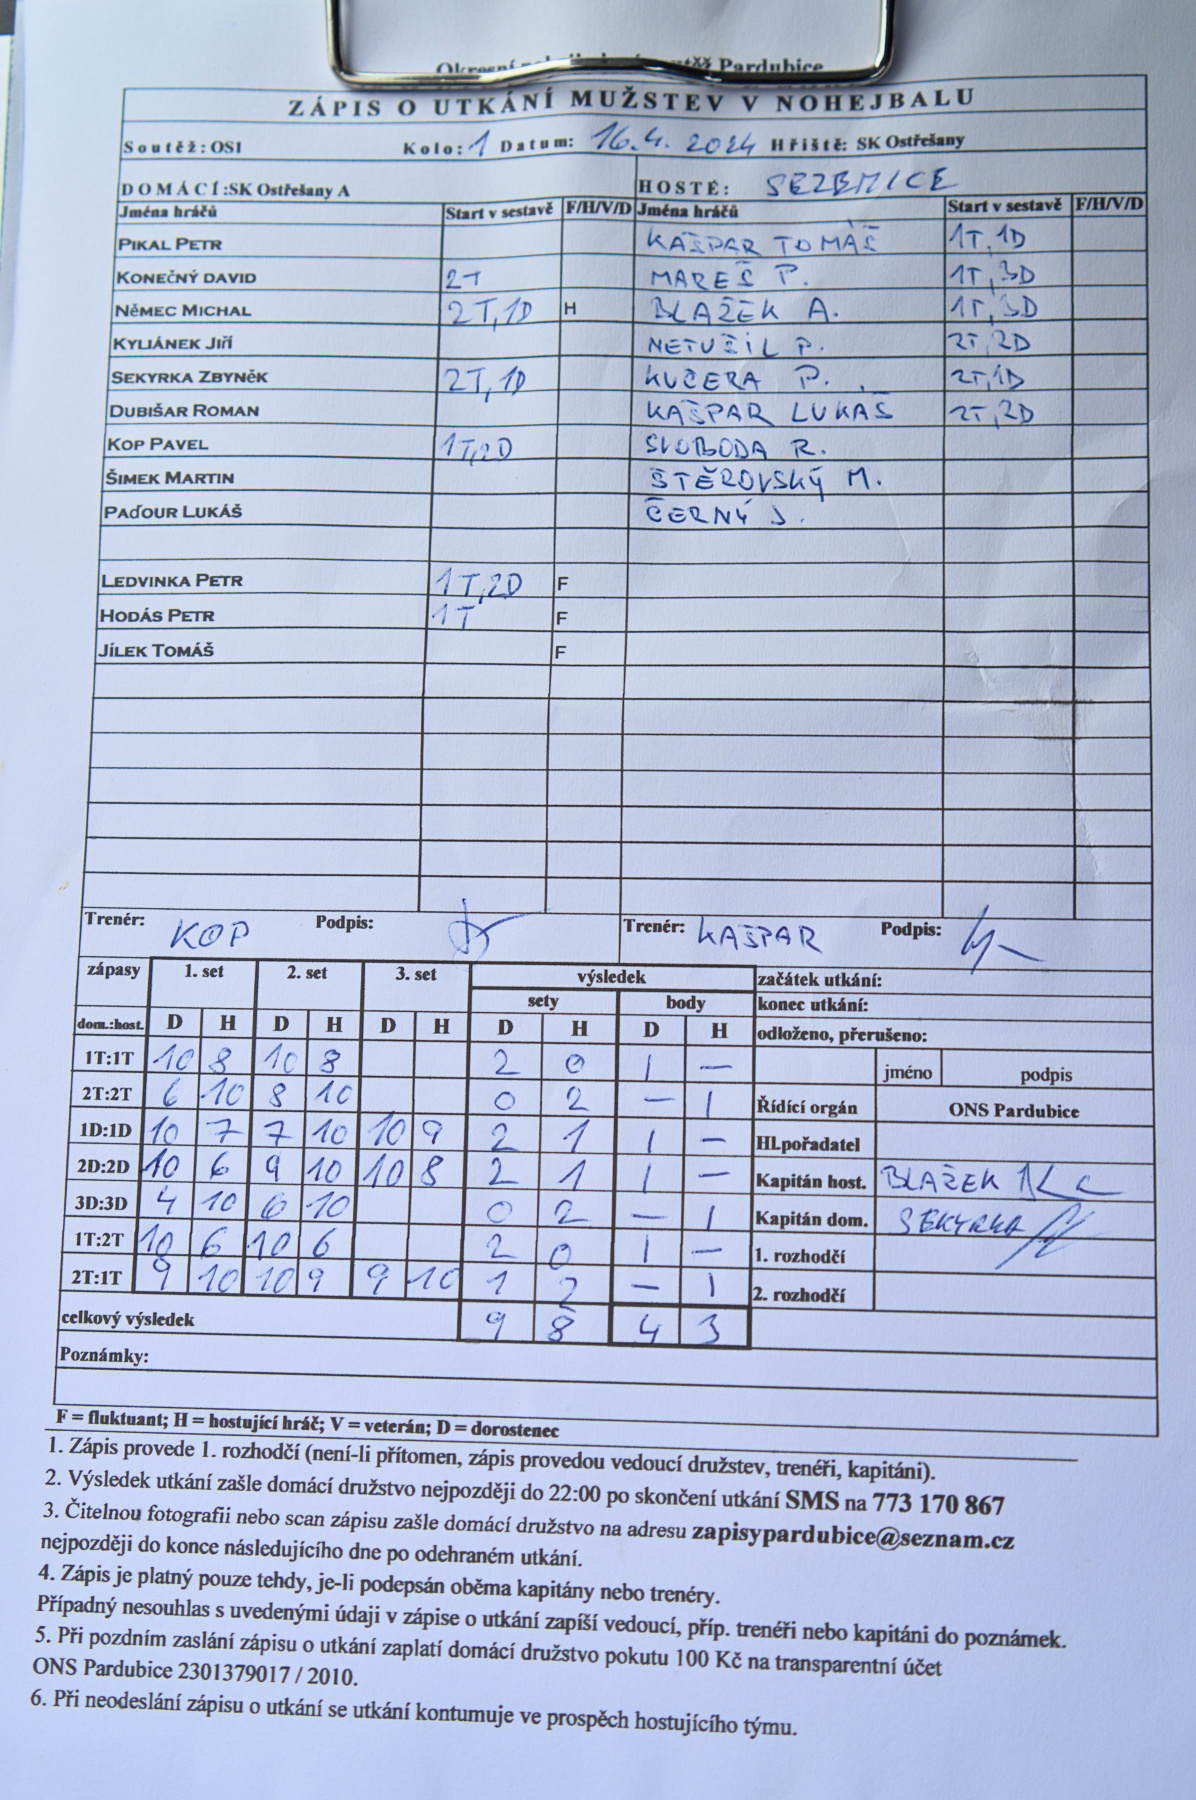 Pardubice
ZÁPIS O UTKÁNÍ MUŽSTEV V NOHEJBALU
Soutěž: OS1 Kolo: 1 Datum: 16.4. 2024 Hřiště: SK Ostřešany
DOMÁCÍ: SK Ostřešany A HOSTÉ: SEZEMICE
Jména hráčů Start v sestavě F/H/V/D Jména hráčů Start v sestavě F/H/V/D
PIKAL PETR KAŠPAR TOMÁŠ 1T,1D
KONEČNÝ DAVID 2T MAREŠ P. 1T,3D
NĚMEC MICHAL 2T,1D H BLAŽEK A. 1T,3D
KYLIÁNEK JIŘÍ NETUŠIL P. 2T,2D
SEKYRKA ZBYNĚK 2T,1D KUČERA P. 2T,1D
DUBIŠAR ROMAN KAŠPAR LUKÁŠ 2T,2D
KOP PAVEL 1T,2D SVOBODA R.
ŠIMEK MARTIN ŠTĚROVSKÝ M.
PAĎOUR LUKÁŠ ČERNÝ J.
LEDVINKA PETR 1T,2D F
HODÁS PETR 1T F
JÍLEK TOMÁŠ F
Trenér: KOP Podpis: Trenér: KAŠPAR Podpis:
zápasy 1. set 2. set 3. set výsledek začátek utkání:
sety body konec utkání:
dom.:host. D H D H D H D H D H odloženo, přerušeno:
1T:1T 10 8 10 8 2 0 1 – jméno podpis
2T:2T 6 10 8 10 0 2 – 1 Řídící orgán ONS Pardubice
1D:1D 10 7 7 10 10 9 2 1 1 – Hl.pořadatel
2D:2D 10 6 9 10 10 8 2 1 1 – Kapitán host. BLAŽEK
3D:3D 4 10 6 10 0 2 – 1 Kapitán dom. SEKYRKA
1T:2T 10 6 10 6 2 0 1 – 1. rozhodčí
2T:1T 9 10 10 9 9 10 1 2 – 1 2. rozhodčí
celkový výsledek 9 8 4 3
Poznámky:
F = fluktuant; H = hostující hráč; V = veterán; D = dorostenec
1. Zápis provede 1. rozhodčí (není-li přítomen, zápis provedou vedoucí družstev, trenéři, kapitáni).
2. Výsledek utkání zašle domácí družstvo nejpozději do 22:00 po skončení utkání SMS na 773 170 867
3. Čitelnou fotografii nebo scan zápisu zašle domácí družstvo na adresu zapisypardubice@seznam.cz
nejpozději do konce následujícího dne po odehraném utkání.
4. Zápis je platný pouze tehdy, je-li podepsán oběma kapitány nebo trenéry.
Případný nesouhlas s uvedenými údaji v zápise o utkání zapíší vedoucí, příp. trenéři nebo kapitáni do poznámek.
5. Při pozdním zaslání zápisu o utkání zaplatí domácí družstvo pokutu 100 Kč na transparentní účet
ONS Pardubice 2301379017 / 2010.
6. Při neodeslání zápisu o utkání se utkání kontumuje ve prospěch hostujícího týmu.